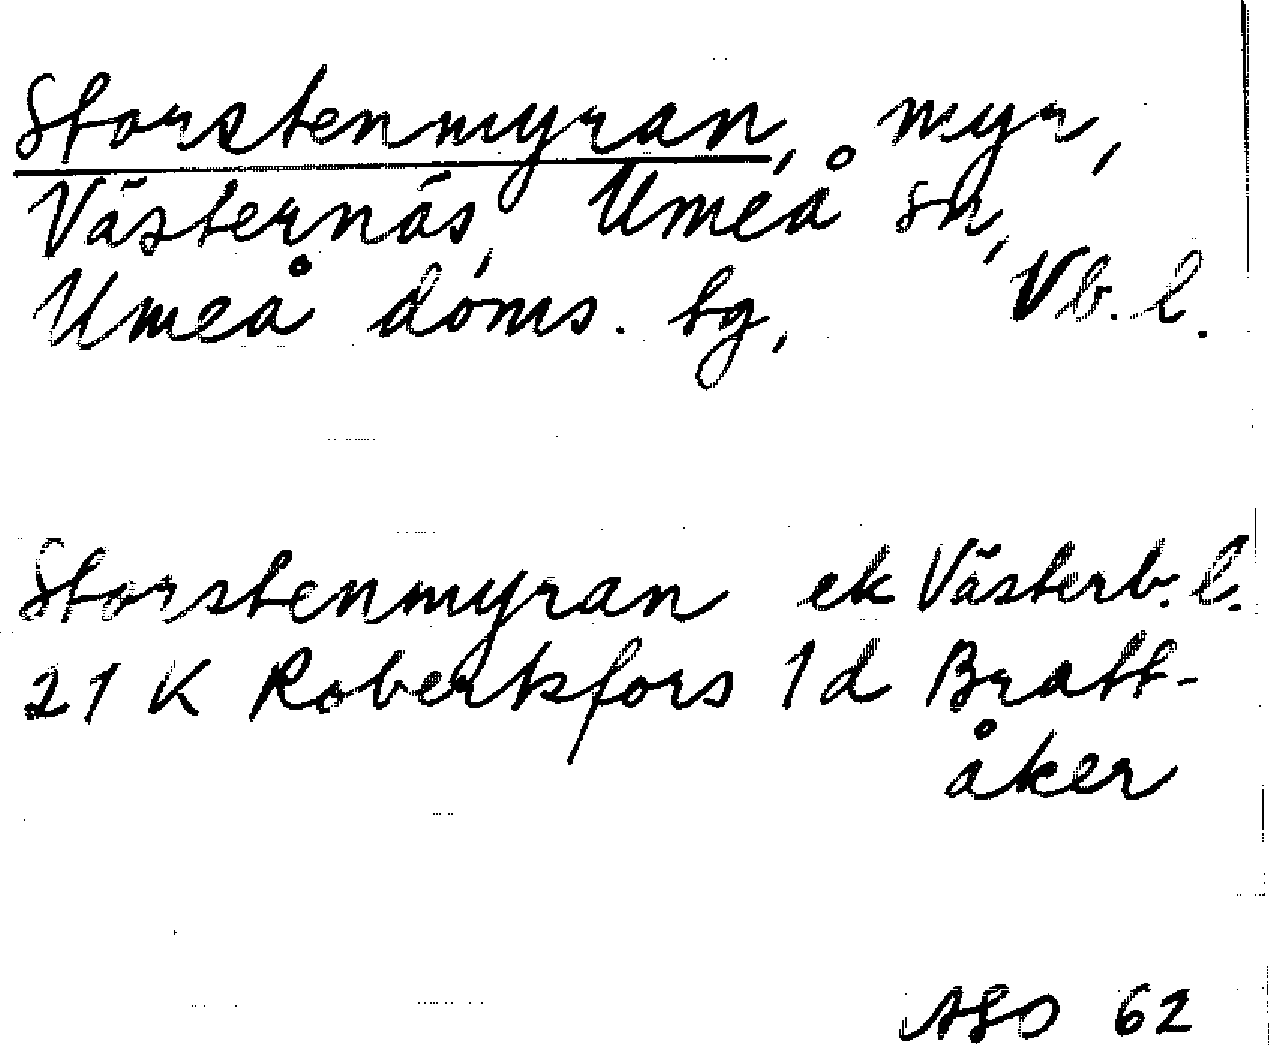 Storstenmyran, myr,
Västernäs, Umeå sn,
Umeå doms. tg, Vb. l.
Storstenmyran ek Västerb. l.
21 K Robertsfors 1 d Bratt-
åker
62